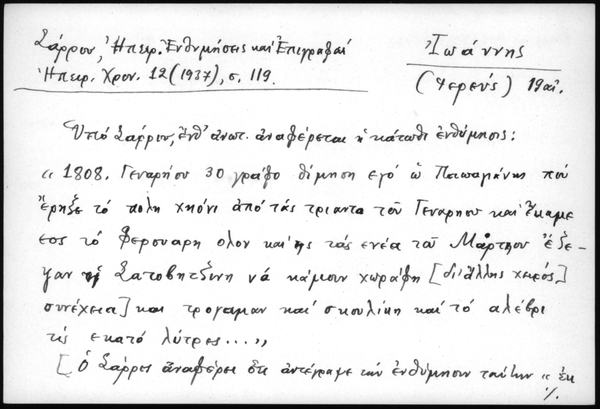 Σάρρου, Ἠπειρ. Ἐνθυμήσεις καὶ Ἐπιγραφαὶ
Ἠπειρ. Χρον. 12 (1937), σ. 119.
Ἰωάννης
(ἱερεύς) 19 αἰ.
Ὑπὸ Σάρρου, ἔνθ' ἀνωτ. ἀναφέρεται ἡ κάτωθι ἐνθύμησις:
« 1808. Γεναρήου 30 γράφο θίμηση εγό ὁ Παπαγιάνης πού
ἔρηξε τό πολη χηόνι από τάς τριαντα τοῦ Γεναρηου και ἔκαμε
εος τό φερουαρη ολον και ης τάς ενέα τοῦ Μάρτηου ἐδε-
Σατοβητζηνη νά κάμουν χωράφη [δι' ἄλλης χειρός,
συνέχεια] και τρογαμαν και σκουλίκη και τό αλέβρι
τις εκατό λύτρες...»
[Ὁ Σάρρος ἀναφέρει ὅτι ἀντέγραψε τὴν ἐνθύμησιν ταύτην « ἐκ
./.